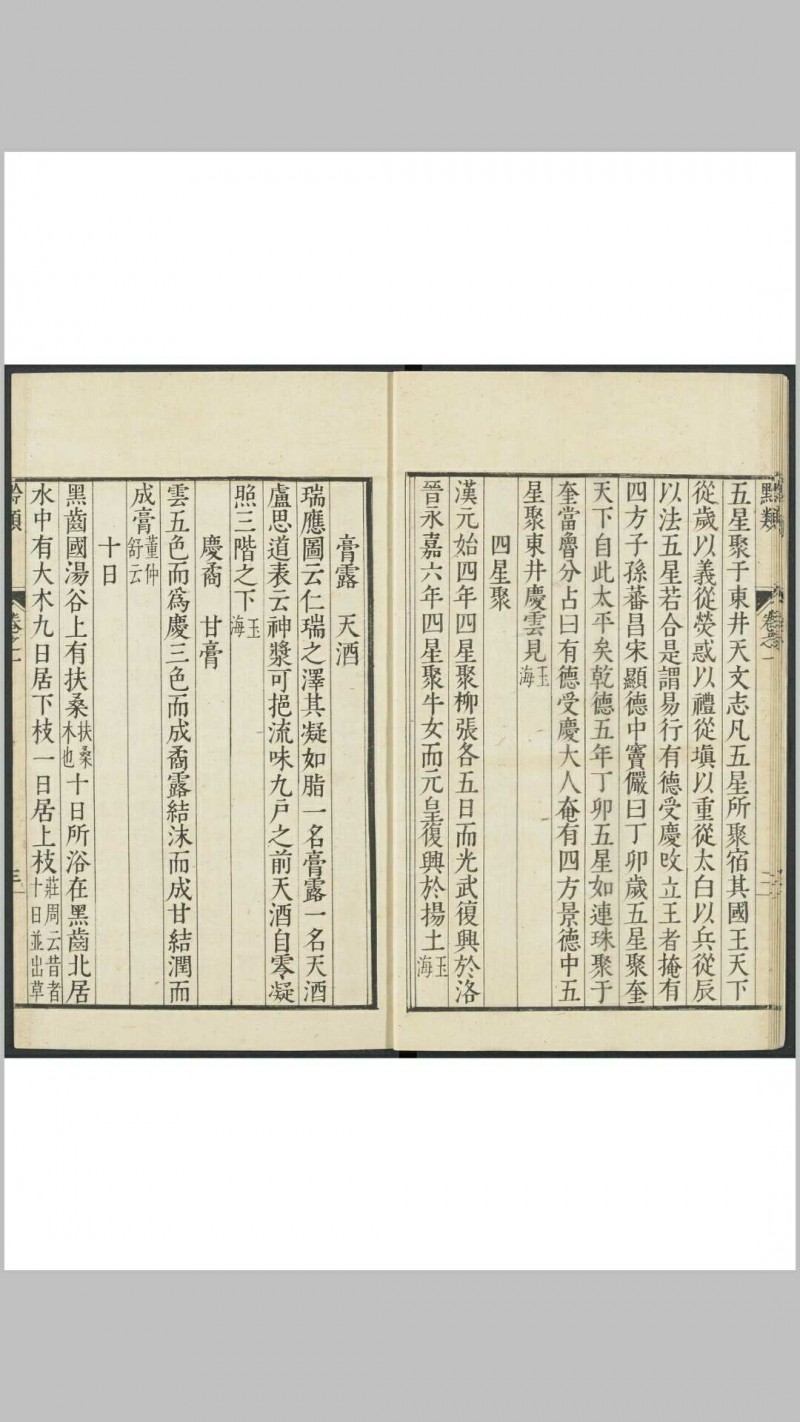 五星聚于東井天文志凡五星所聚宿其國王天下
從歲以義從熒惑以禮從塡以重從太白以兵從辰
以法五星若合是謂易行有德受慶攺立王者掩有
四方子孫蕃昌宋顯德中竇儼曰丁卯歲五星聚奎
天下自此太平矣乾德五年丁卯五星如連珠聚于
奎當魯分占曰有德受慶大人奄有四方景德中五
星聚東井慶雲見玉海
四星聚
漢元始四年四星聚柳張各五日而光武復興於洛
晉永嘉六年四星聚牛女而元皇復興於揚土玉海
膏露 天酒
瑞應圖云仁瑞之澤其凝如脂一名膏露一名天酒
盧思道表云神漿可挹流味九戸之前天酒自零凝
照三階之下玉海
慶矞 甘膏
雲五色而爲慶三色而成矞露結沫而成甘結潤而
成膏董仲舒云
十日
黑齒國湯谷上有扶桑扶桑木也十日所浴在黑齒北居
水中有大木九日居下枝一日居上枝莊周云昔者十日並出草